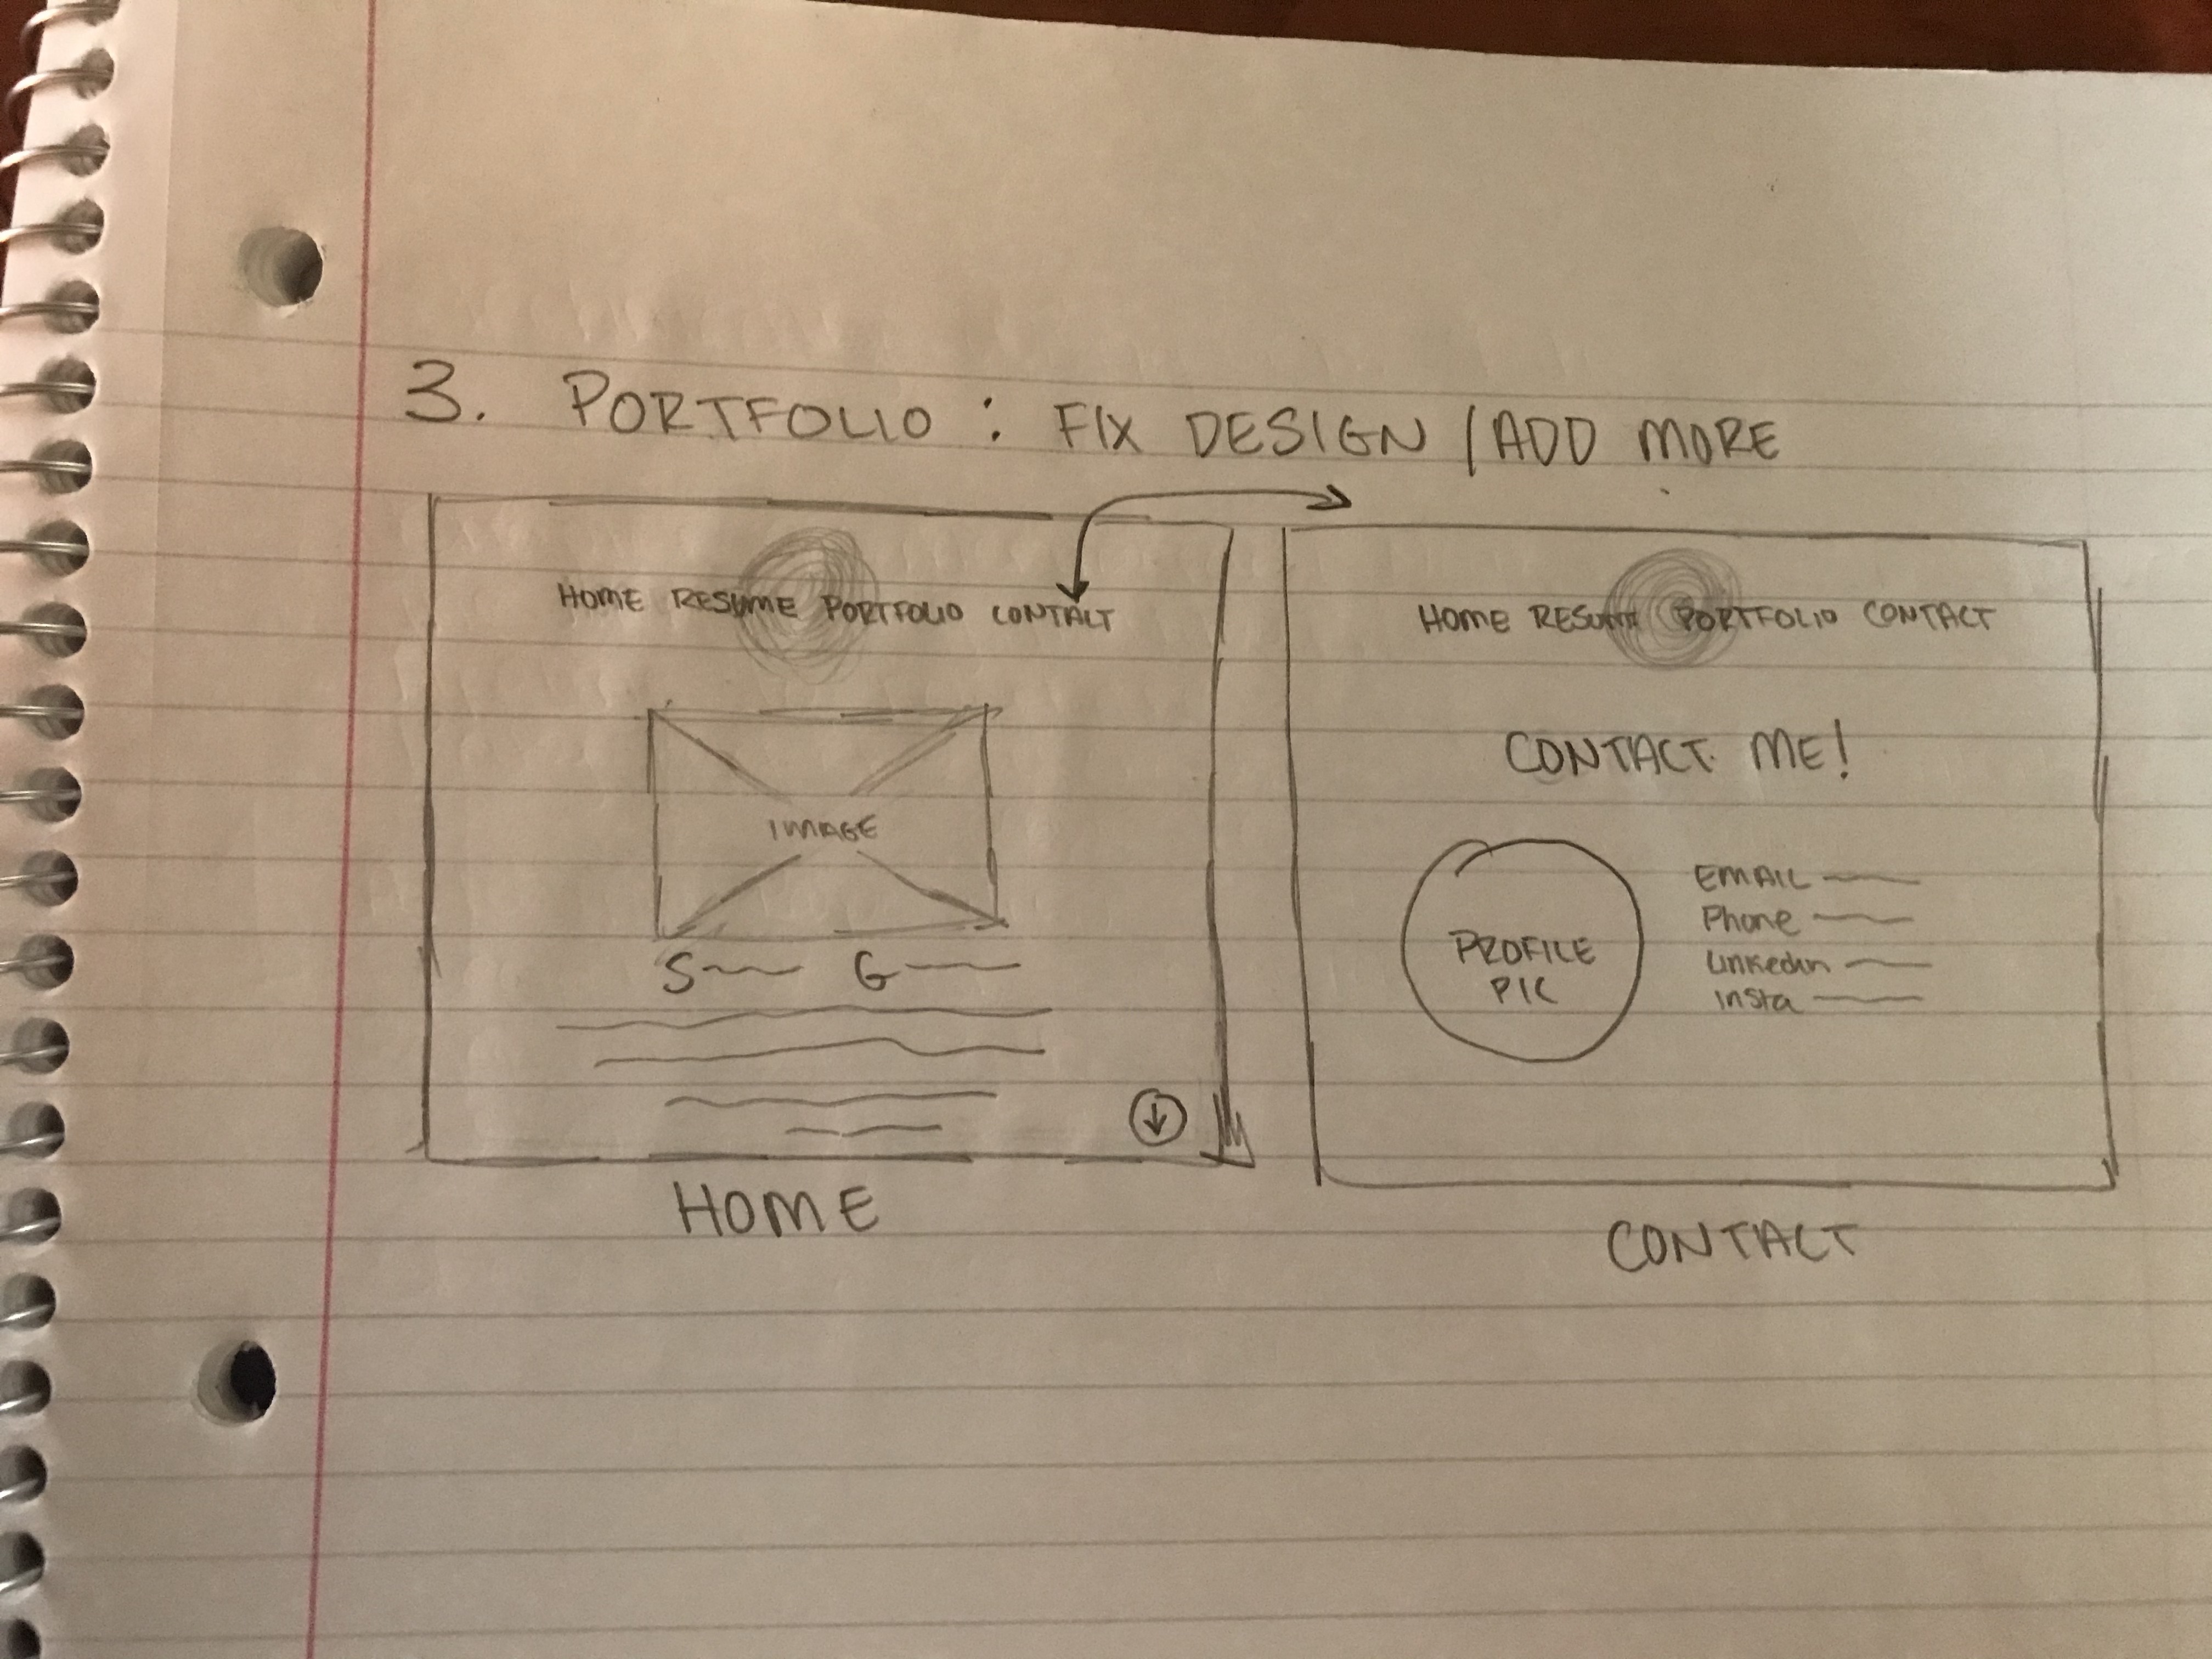 3. PORTFOLIO : FIX DESIGN / ADD MORE
HOME RESUME PORTFOLIO CONTACT
IMAGE
S G
HOME
HOME RESUME PORTFOLIO CONTACT
CONTACT ME!
PROFILE
PIC
EMAIL
Phone
Linkedin
insta
CONTACT